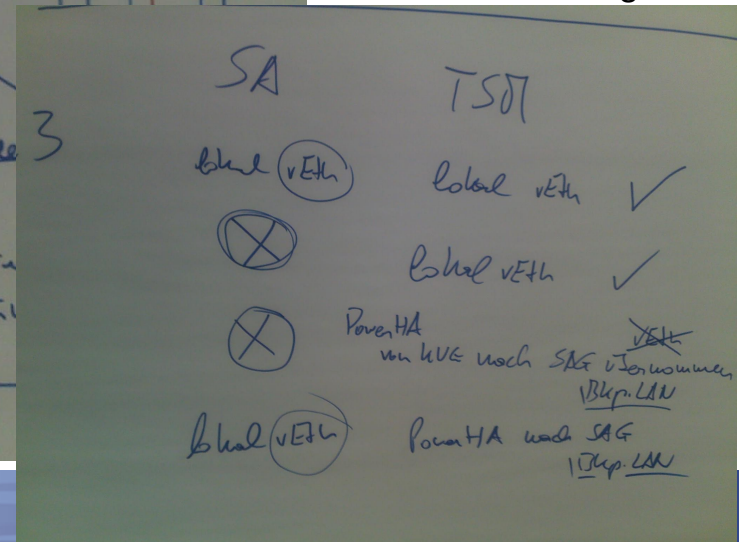 SA TSM
3
lokal vEth lokal vEth ✓
lokal vEth ✓
PowerHA
von HVE nach SAG übernommen
Bkp.LAN
lokal vEth PowerHA nach SAG
Bkp.LAN